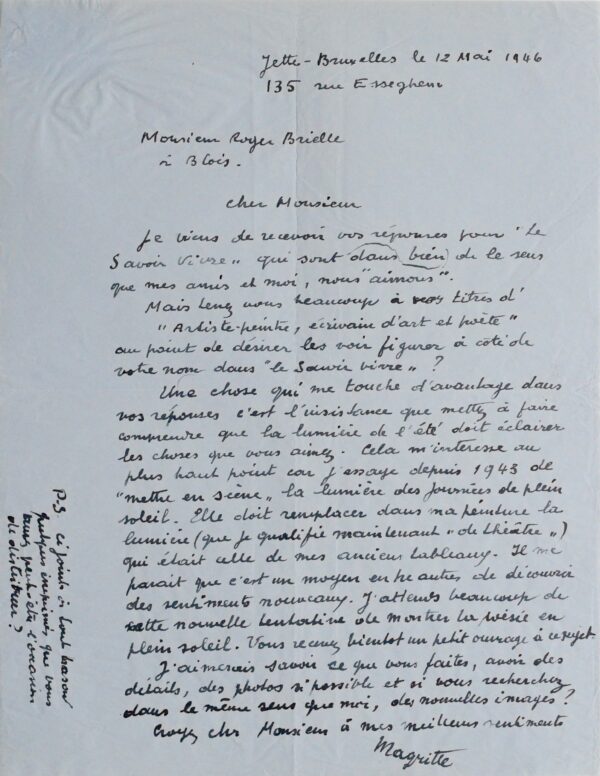 Jette-Bruxelles le 12 Mai 1946
135 rue Esseghem
Monsieur Roger Brielle
à Blois.
Cher Monsieur
Je viens de recevoir vos réponses pour "Le
Savoir Vivre" qui sont dans bien de le sens
que mes amis et moi, nous "aimons".
Mais tenez vous beaucoup à vos titres d'
"Artiste-peintre, écrivain d'art et poète"
au point de désirer les voir figurer à côté de
votre nom dans "le Savoir vivre" ?
Une chose qui me touche d'avantage dans
vos réponses c'est l'insistance que mettez à faire
comprendre que la lumière de l'été doit éclairer
les choses que vous aimez. Cela m'intéresse au
plus haut point car j'essaye depuis 1943 de
"mettre en scène" la lumière des journées de plein
soleil. Elle doit remplacer dans ma peinture la
lumière (que je qualifie maintenant "de théâtre")
qui était celle de mes anciens tableaux. Il me
parait que c'est un moyen entre autres de découvrir
des sentiments nouveaux. J'attends beaucoup de
cette nouvelle tentative de montrer la poésie en
plein soleil. Vous recevrez bientôt un petit ouvrage à ce sujet.
J'aimerais savoir ce que vous faites, avoir des
détails, des photos si possible et si vous recherchez
dans le même sens que moi, des nouvelles images ?
Croyez cher Monsieur à mes meilleurs sentiments
Magritte
P-S ci joints à tout hasard
quelques imprimés, que vous
aurez peut-être l'occasion
de distribuer ?